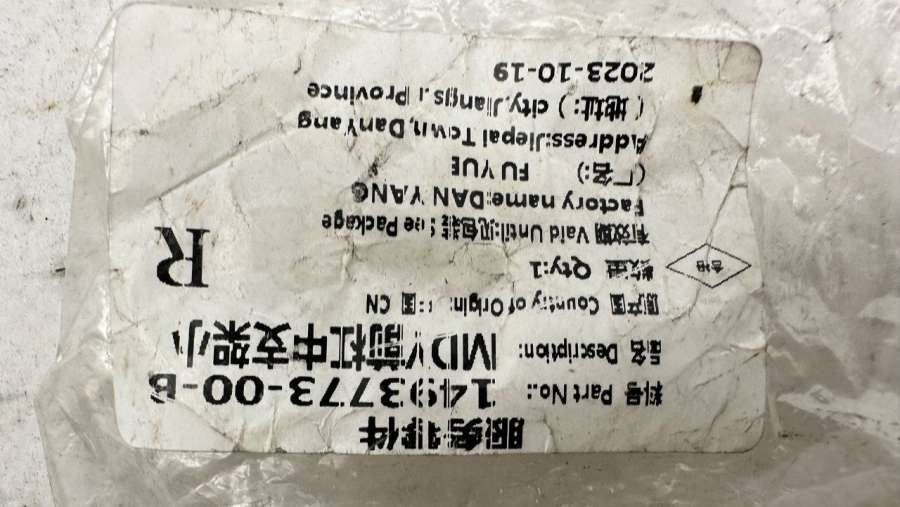 服务零件
料号 Part No.: 1493773-00-B
品名 Description: MDY前杠中支架小
原产国 Country of Origin: 中国 CN
数量 Qty:1
合格
R
有效期 Vaid Until:见包装 See Package
Factory name:DAN YANG
(厂名:) FU YUE
Address:Jiepai Town,DanYang
(地址:) city,Jiangsu Province
2023-10-19